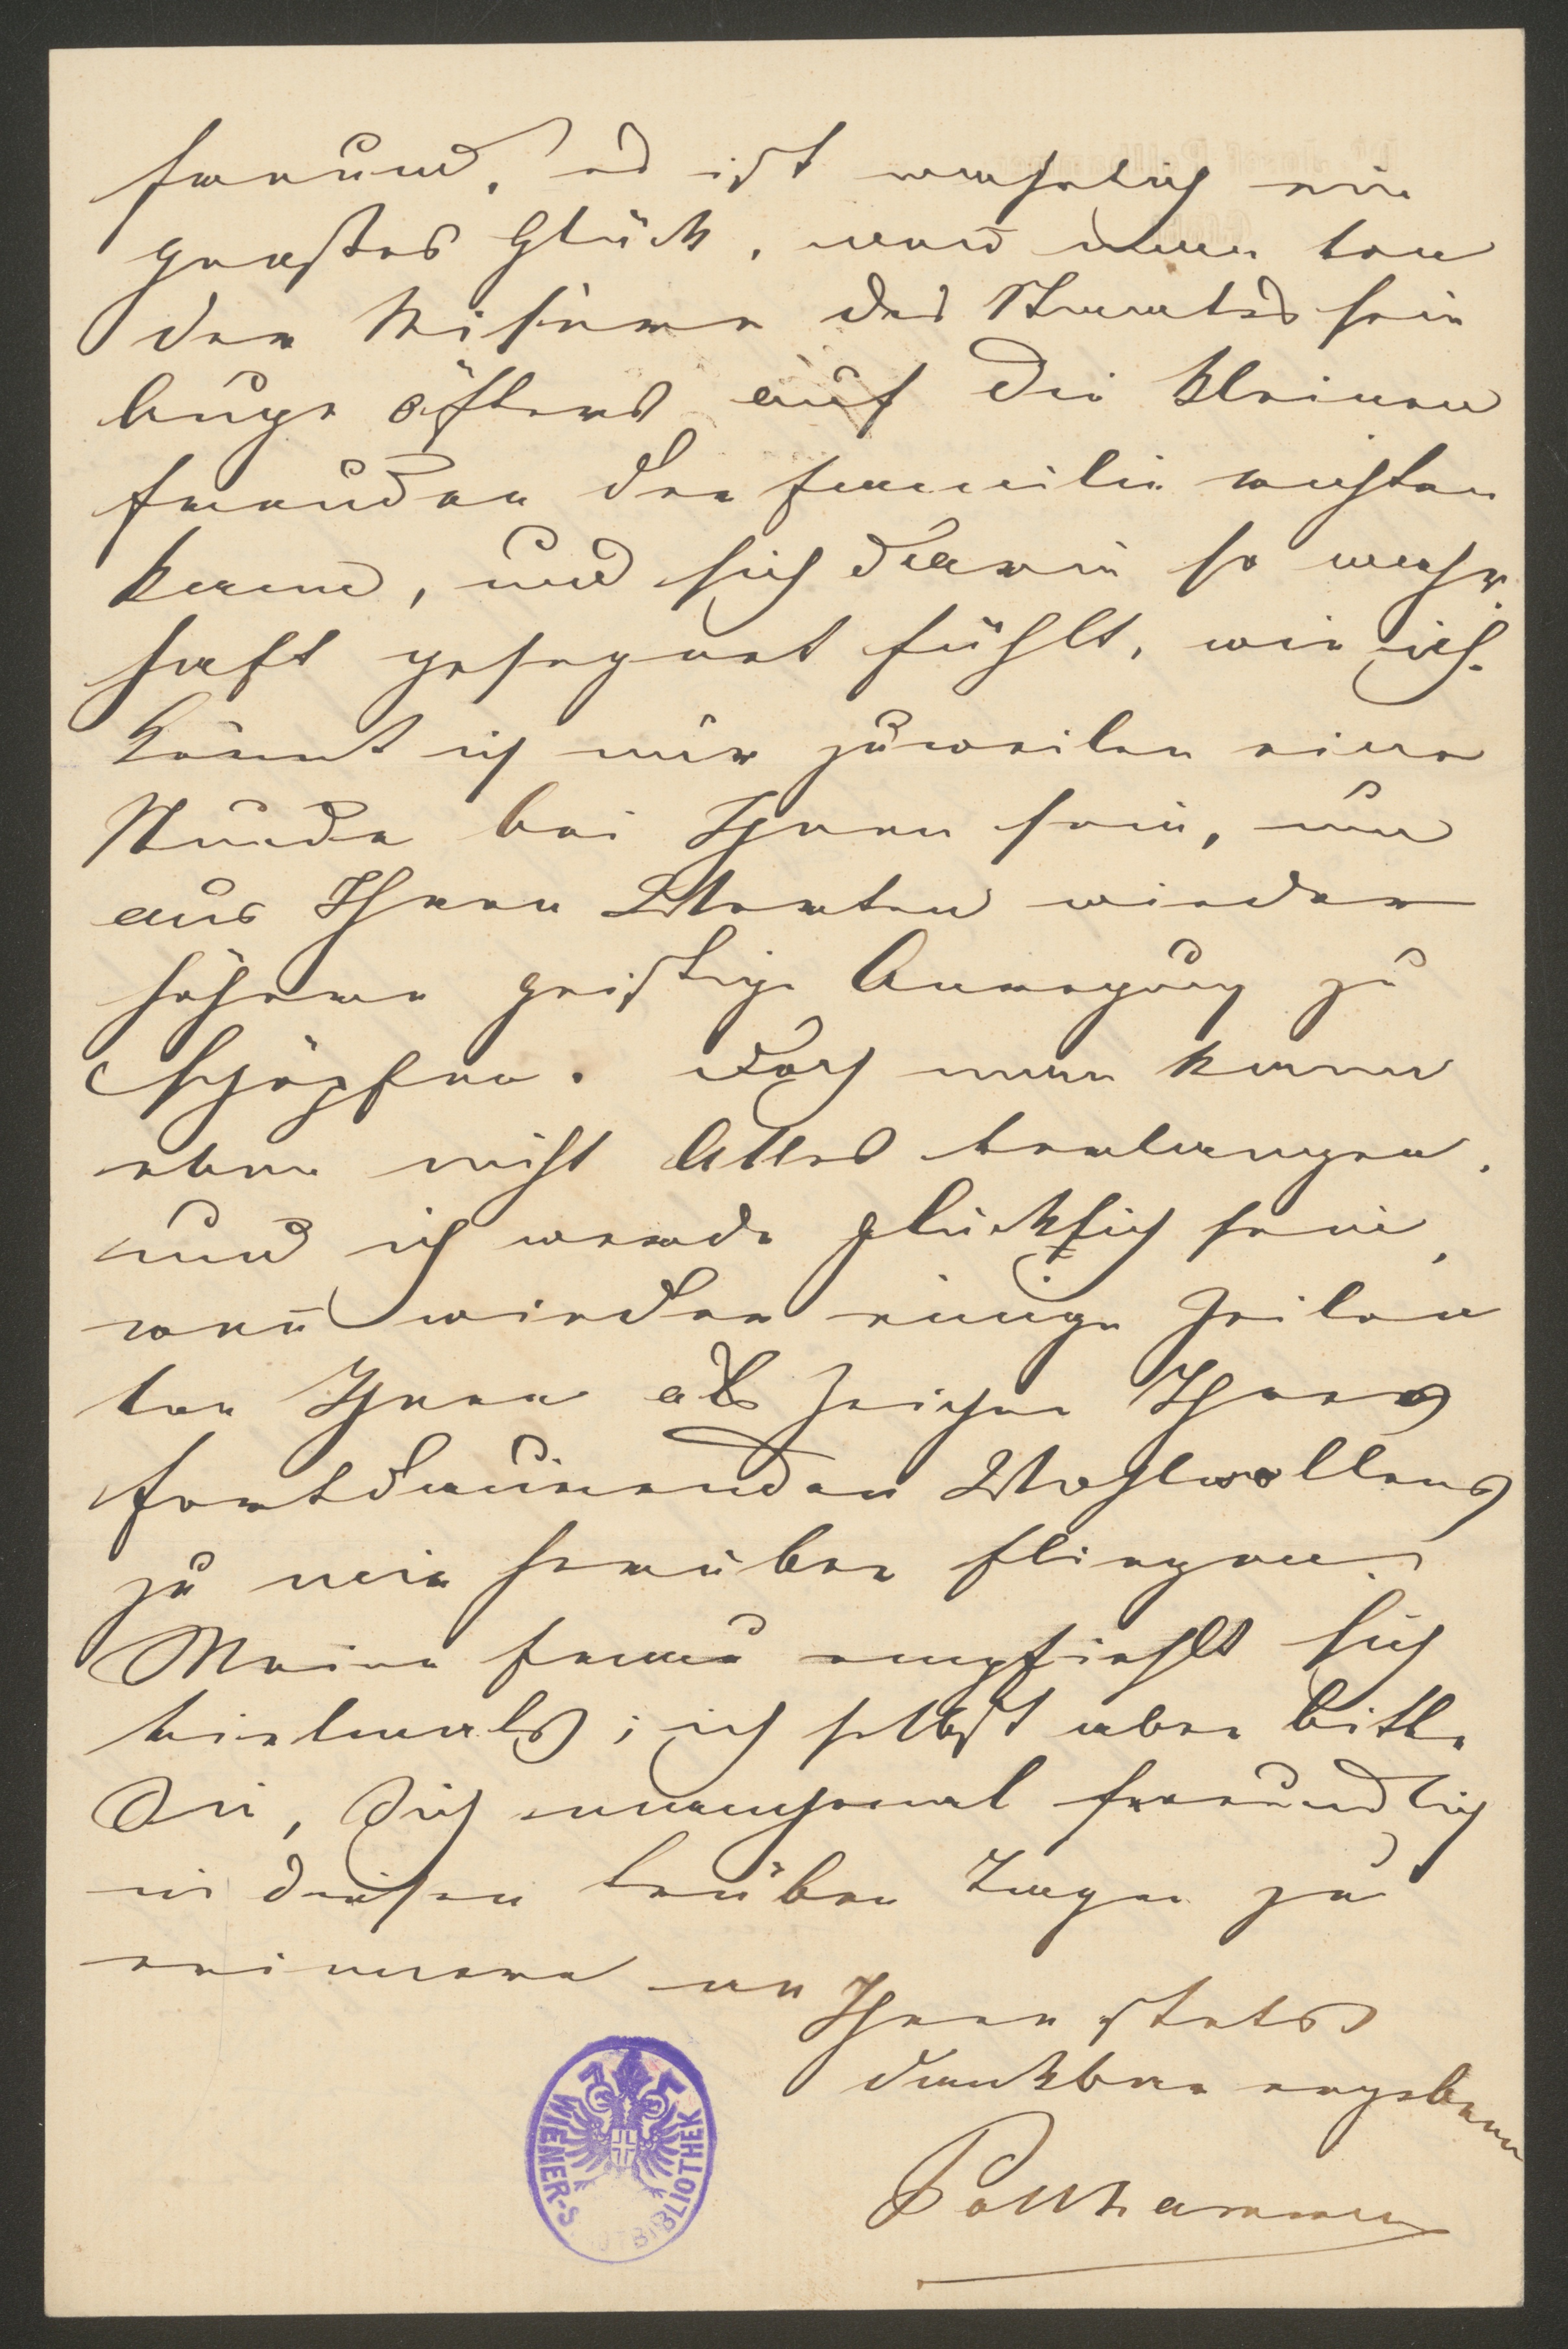 Freund, es ist wahrlich ein
großes Glück, wenn man von
der Misere des Staates sein
Auge öfters auf die kleinen
Freuden der Familie richten
kann, und sich darin so wahr-
haft gesegnet fühlt, wie ich.
Könnt ich nur zuweilen eine
Stunde bei Ihnen sein, um
aus Ihren Worten wieder
höhere geistige Anregung zu
schöpfen. Doch man kann
eben nicht Alles verlangen,
und ich werde glücklich sein,
wen̄ wieder einige Zeilen
von Ihnen als Zeichen Ihres
fortdauernden Wohlwollens
zu mir herüber fliegen.
Meine Frau empfiehlt sich
vielmals; ich selbst aber bitte
Sie, Sich manchmal freundlich
in diesen trüben Tagen zu
erinnern an
Ihren stets
dankbar ergebenen
Pollhammer
WIENER-S BIBLIOTHEK